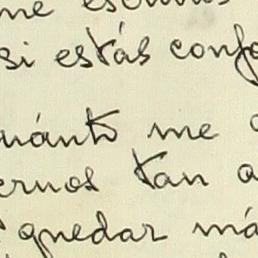 me
si estás conf
uánto me
ernos tan a
quedar má